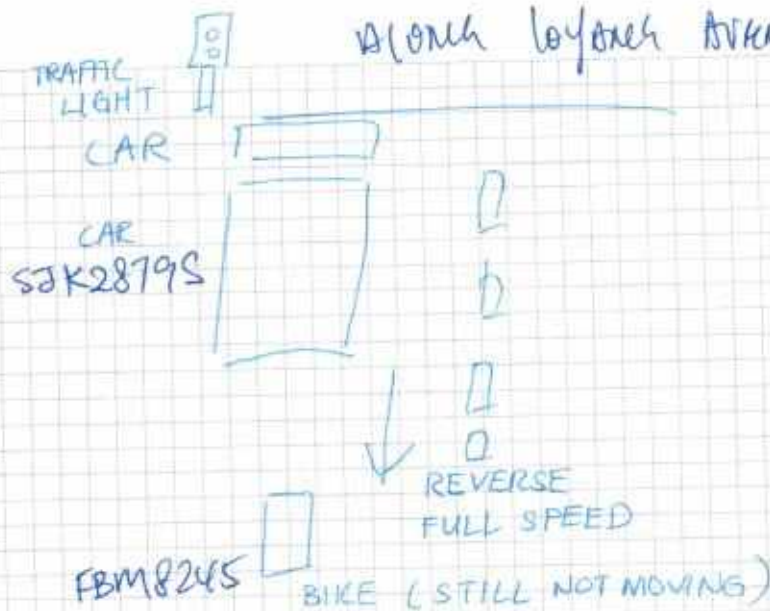 Along Loyang
TRAFFIC
LIGHT
CAR
CAR
SJK2879S
REVERSE
FULL SPEED
FBM8245
BIKE (STILL NOT MOVING)